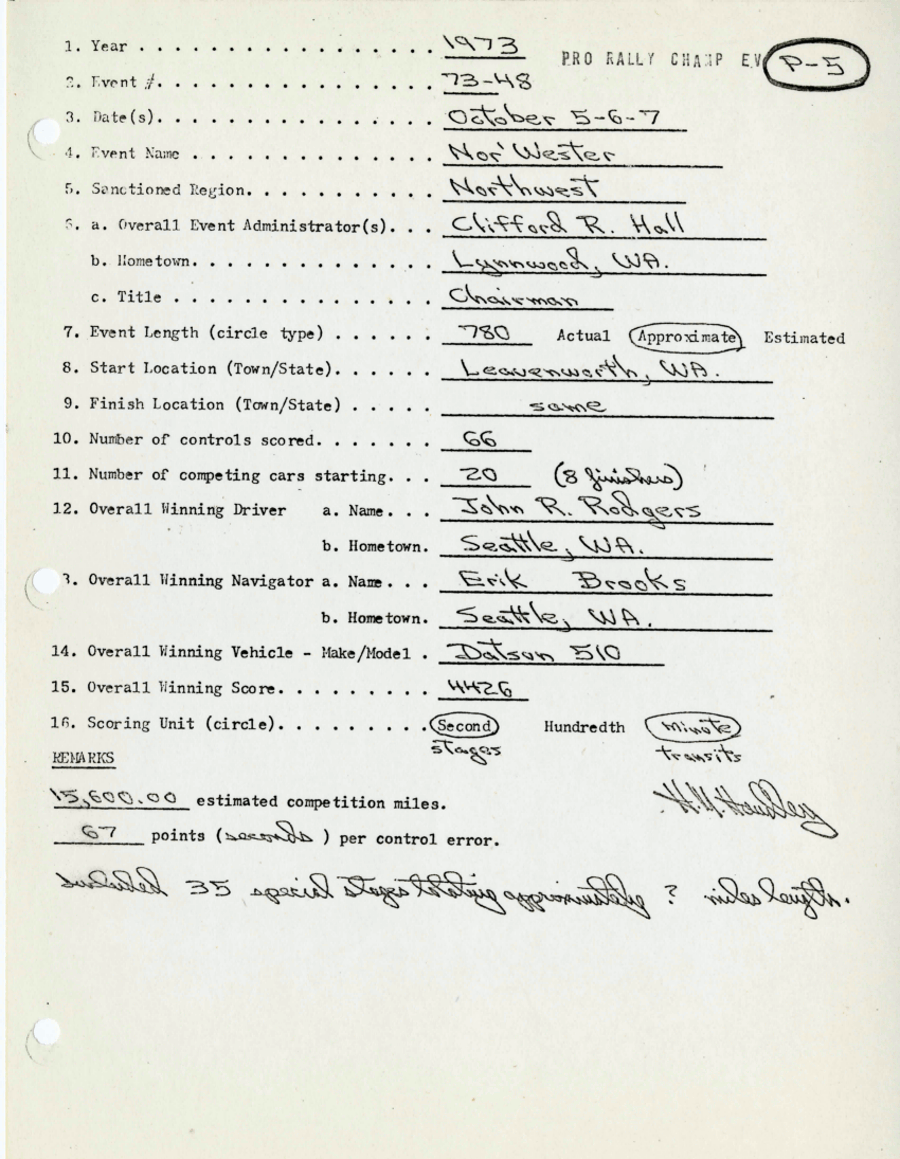 1. Year . . . . . . . . . . . . . . . . . 1973
PRO RALLY CHAMP EV P-5
2. Event #. . . . . . . . . . . . . . . . 73-48
3. Date(s). . . . . . . . . . . . . . . . October 5-6-7
4. Event Name . . . . . . . . . . . . . . Nor'Wester
5. Sanctioned Region. . . . . . . . . . . Northwest
6. a. Overall Event Administrator(s). . . Clifford R. Hall
b. Hometown. . . . . . . . . . . . . . Lynnwood, WA.
c. Title . . . . . . . . . . . . . . . Chairman
7. Event Length (circle type) . . . . . . 780 Actual Approximate Estimated
8. Start Location (Town/State). . . . . . Leavenworth, WA.
9. Finish Location (Town/State) . . . . . same
10. Number of controls scored. . . . . . . 66
11. Number of competing cars starting. . . 20 (8 finishers)
12. Overall Winning Driver a. Name. . . John R. Rodgers
b. Hometown. Seattle, WA.
3. Overall Winning Navigator a. Name. . . Erik Brooks
b. Hometown. Seattle, WA.
14. Overall Winning Vehicle - Make/Model . Datsun 510
15. Overall Winning Score. . . . . . . . . 4426
16. Scoring Unit (circle). . . . . . . . . Second Hundredth minute
stages transits
REMARKS
15,600.00 estimated competition miles.
67 points (seconds) per control error.
Included 35 special stages totaling approximately ? miles length.